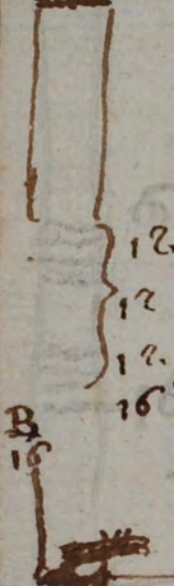 12.
12
12.
16
B
16